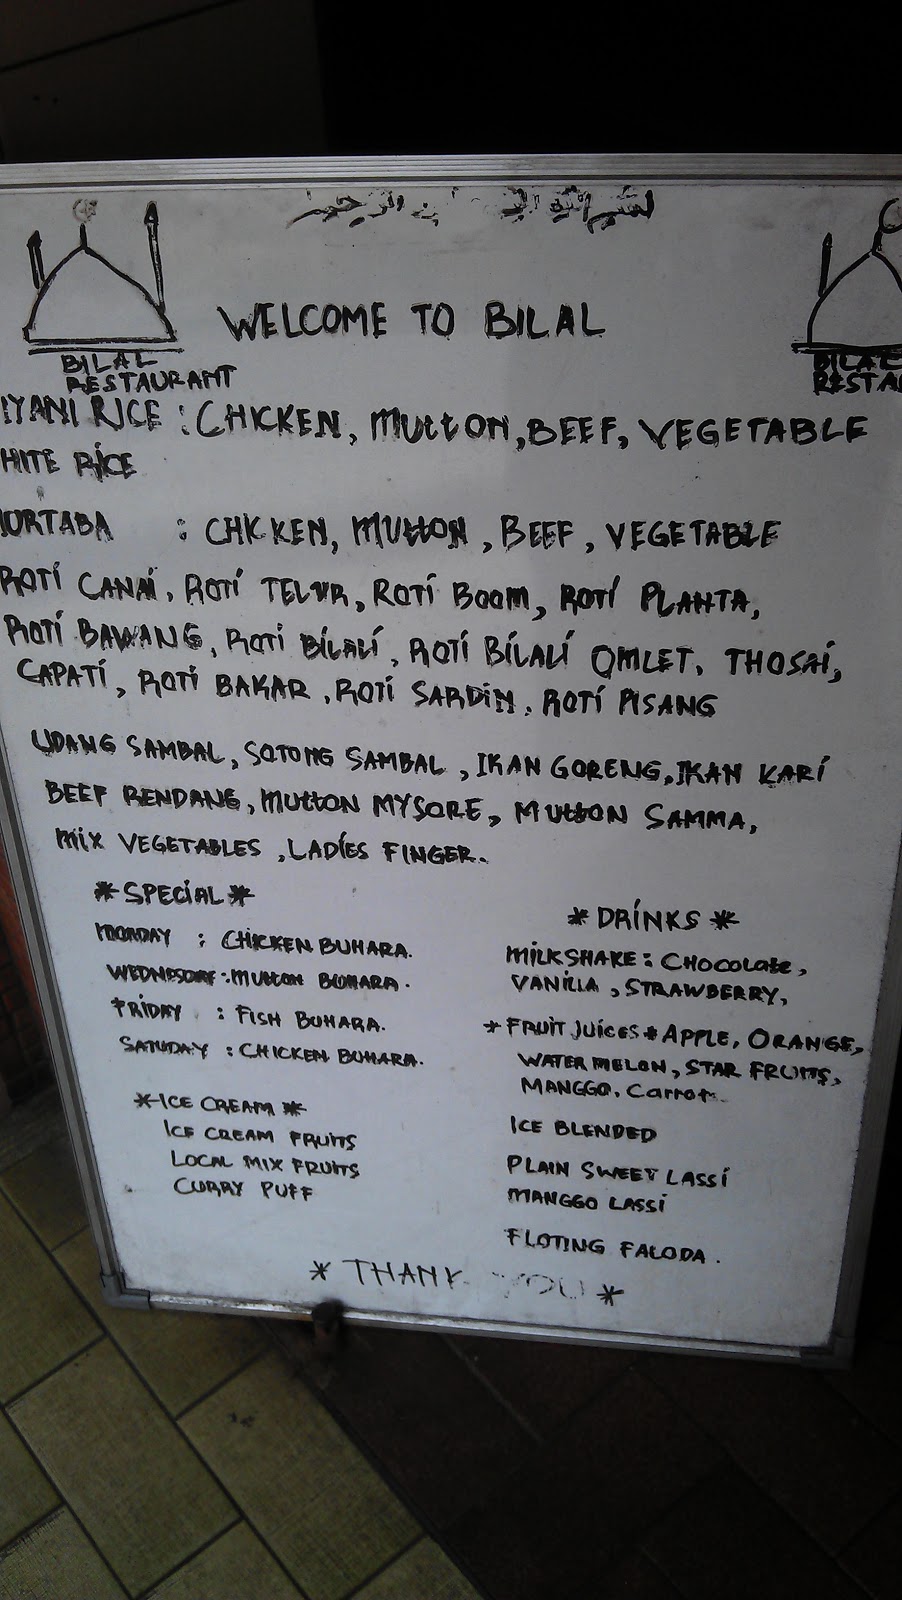 WELCOME TO BILAL
BILAL
RESTAURANT
BILAL
RESTA
IYANI RICE : CHICKEN, MUTTON, BEEF, VEGETABLE
HITE RICE
ORTABA : CHICKEN, MUTTON, BEEF, VEGETABLE
ROTI CANAI, ROTI TELUR, ROTI BOOM, ROTI PLANTA,
ROTI BAWANG, ROTI BILALI, ROTI BILALI OMLET, THOSAI,
CAPATI, ROTI BAKAR, ROTI SARDIN, ROTI PISANG
UDANG SAMBAL, SOTONG SAMBAL, IKAN GORENG, IKAN KARI
BEEF RENDANG, MUTTON MYSORE, MUTTON SAMMA,
MIX VEGETABLES, LADIES FINGER.
*SPECIAL*
MONDAY : CHICKEN BUHARA.
: MUTTON BUHARA.
FRIDAY : FISH BUHARA.
SATUDAY : CHICKEN BUHARA.
*ICE CREAM*
ICE CREAM FRUITS
LOCAL MIX FRUITS
CURRY PUFF
*DRINKS*
MILKSHAKE : CHOCOLATE,
VANILLA, STRAWBERRY,
*FRUIT JUICES* APPLE, ORANGE,
WATER MELON, STAR FRUITS,
MANGGO, Carrot.
ICE BLENDED
PLAIN SWEET LASSI
MANGGO LASSI
FLOTING FALODA.
* THANK YOU *